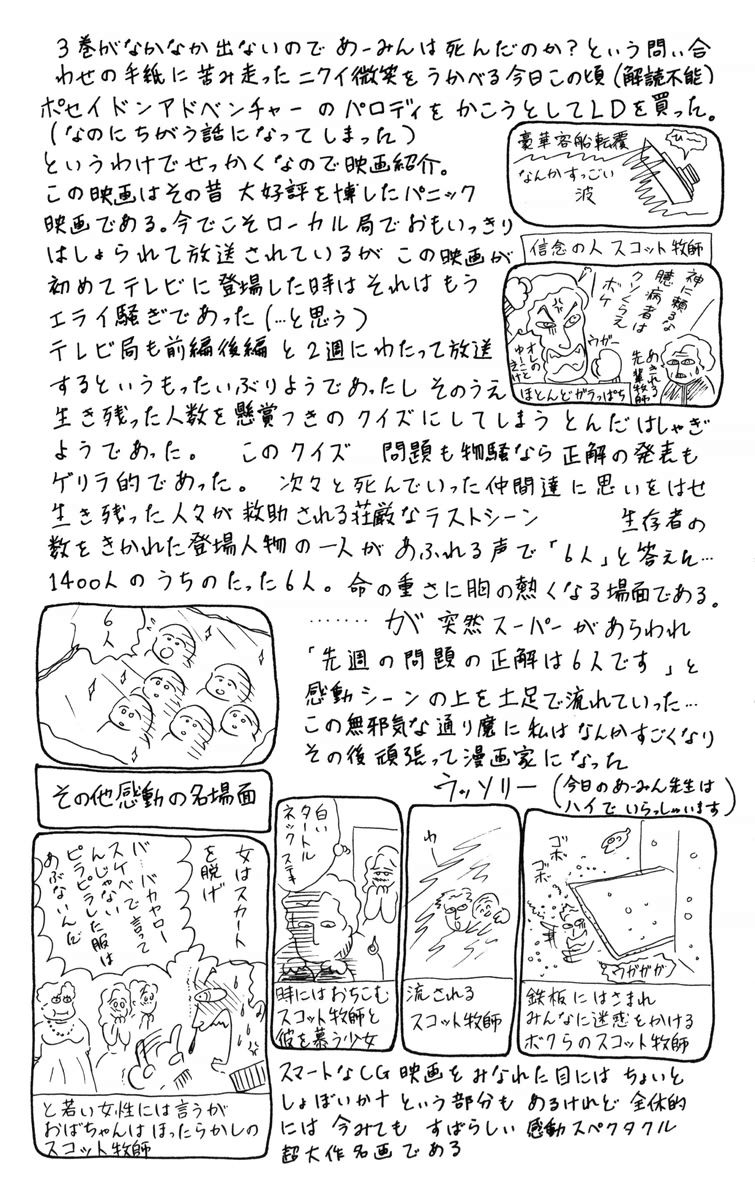 3巻がなかなか出ないので あーみんは死んだのか?という問い合
わせの手紙に苦み走ったニクイ微笑をうかべる今日この頃(解読不能)
ポセイドンアドベンチャーのパロディをかこうとしてLDを買った。
(なのにちがう話になってしまった)
というわけでせっかくなので映画紹介。
この映画はその昔 大好評を博したパニック
映画である。今でこそローカル局でおもいっきり
はしょられて放送されているが この映画が
初めてテレビに登場した時は それはもう
エライ騒ぎであった(…と思う)
テレビ局も前編後編と2週にわたって放送
するというもったいぶりようであったし そのうえ
生き残った人数を懸賞つきのクイズにしてしまう とんだはしゃぎ
ようであった。 このクイズ 問題も物騒なら正解の発表も
ゲリラ的であった。 次々と死んでいった仲間達に思いをはせ
生き残った人々が救助される荘厳なラストシーン 生存者の
数をきかれた登場人物の一人が あふれる声で「6人」と答えた…
1400人のうちのたった6人。命の重さに胸の熱くなる場面である。
………が 突然スーパーがあらわれ
「先週の問題の正解は6人です」と
感動シーンの上を土足で流れていった…
この無邪気な通り魔に私はなんかすごくなり
その後頑張って漫画家になった
ウッソリー(今日のあーみん先生は
ハイでいらっしゃいます)
豪華客船転覆
ひー
なんかすっごい
波
信念の人 スコット牧師
神に頼るな
臆病者は
クソくらえ
ボケ
ウガー
オレの
ゆーこと
きけ
あきれる
先輩牧師
ほとんどガラっぱち
6人
その他感動の名場面
女はスカート
を脱げ
バ…バカヤロー
スケベで言って
んじゃない
ピラピラした服は
あぶないんだ
と若い女性には言うが
おばちゃんはほったらかしの
スコット牧師
白い
タートル
ネックステキ
時にはおちこむ
スコット牧師と
彼を慕う少女
わー
流される
スコット牧師
ゴボ
ゴボ
鉄板にはさまれ
みんなに迷惑をかける
ボクらのスコット牧師
スマートなCG映画をみなれた目には ちょいと
しょぼいかナという部分も あるけれど 全体的
には 今みても すばらしい 感動スペクタクル
超大作名画である